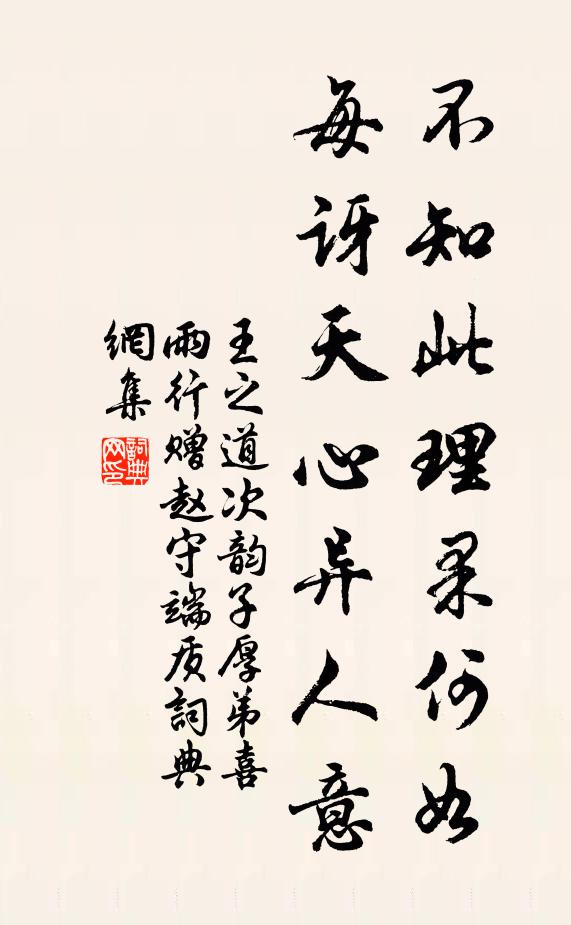 不知此理果何如
每讶天心异人意
王之道次韵子厚弟喜
雨行赠赵守端质詞典
網集
詞典网印